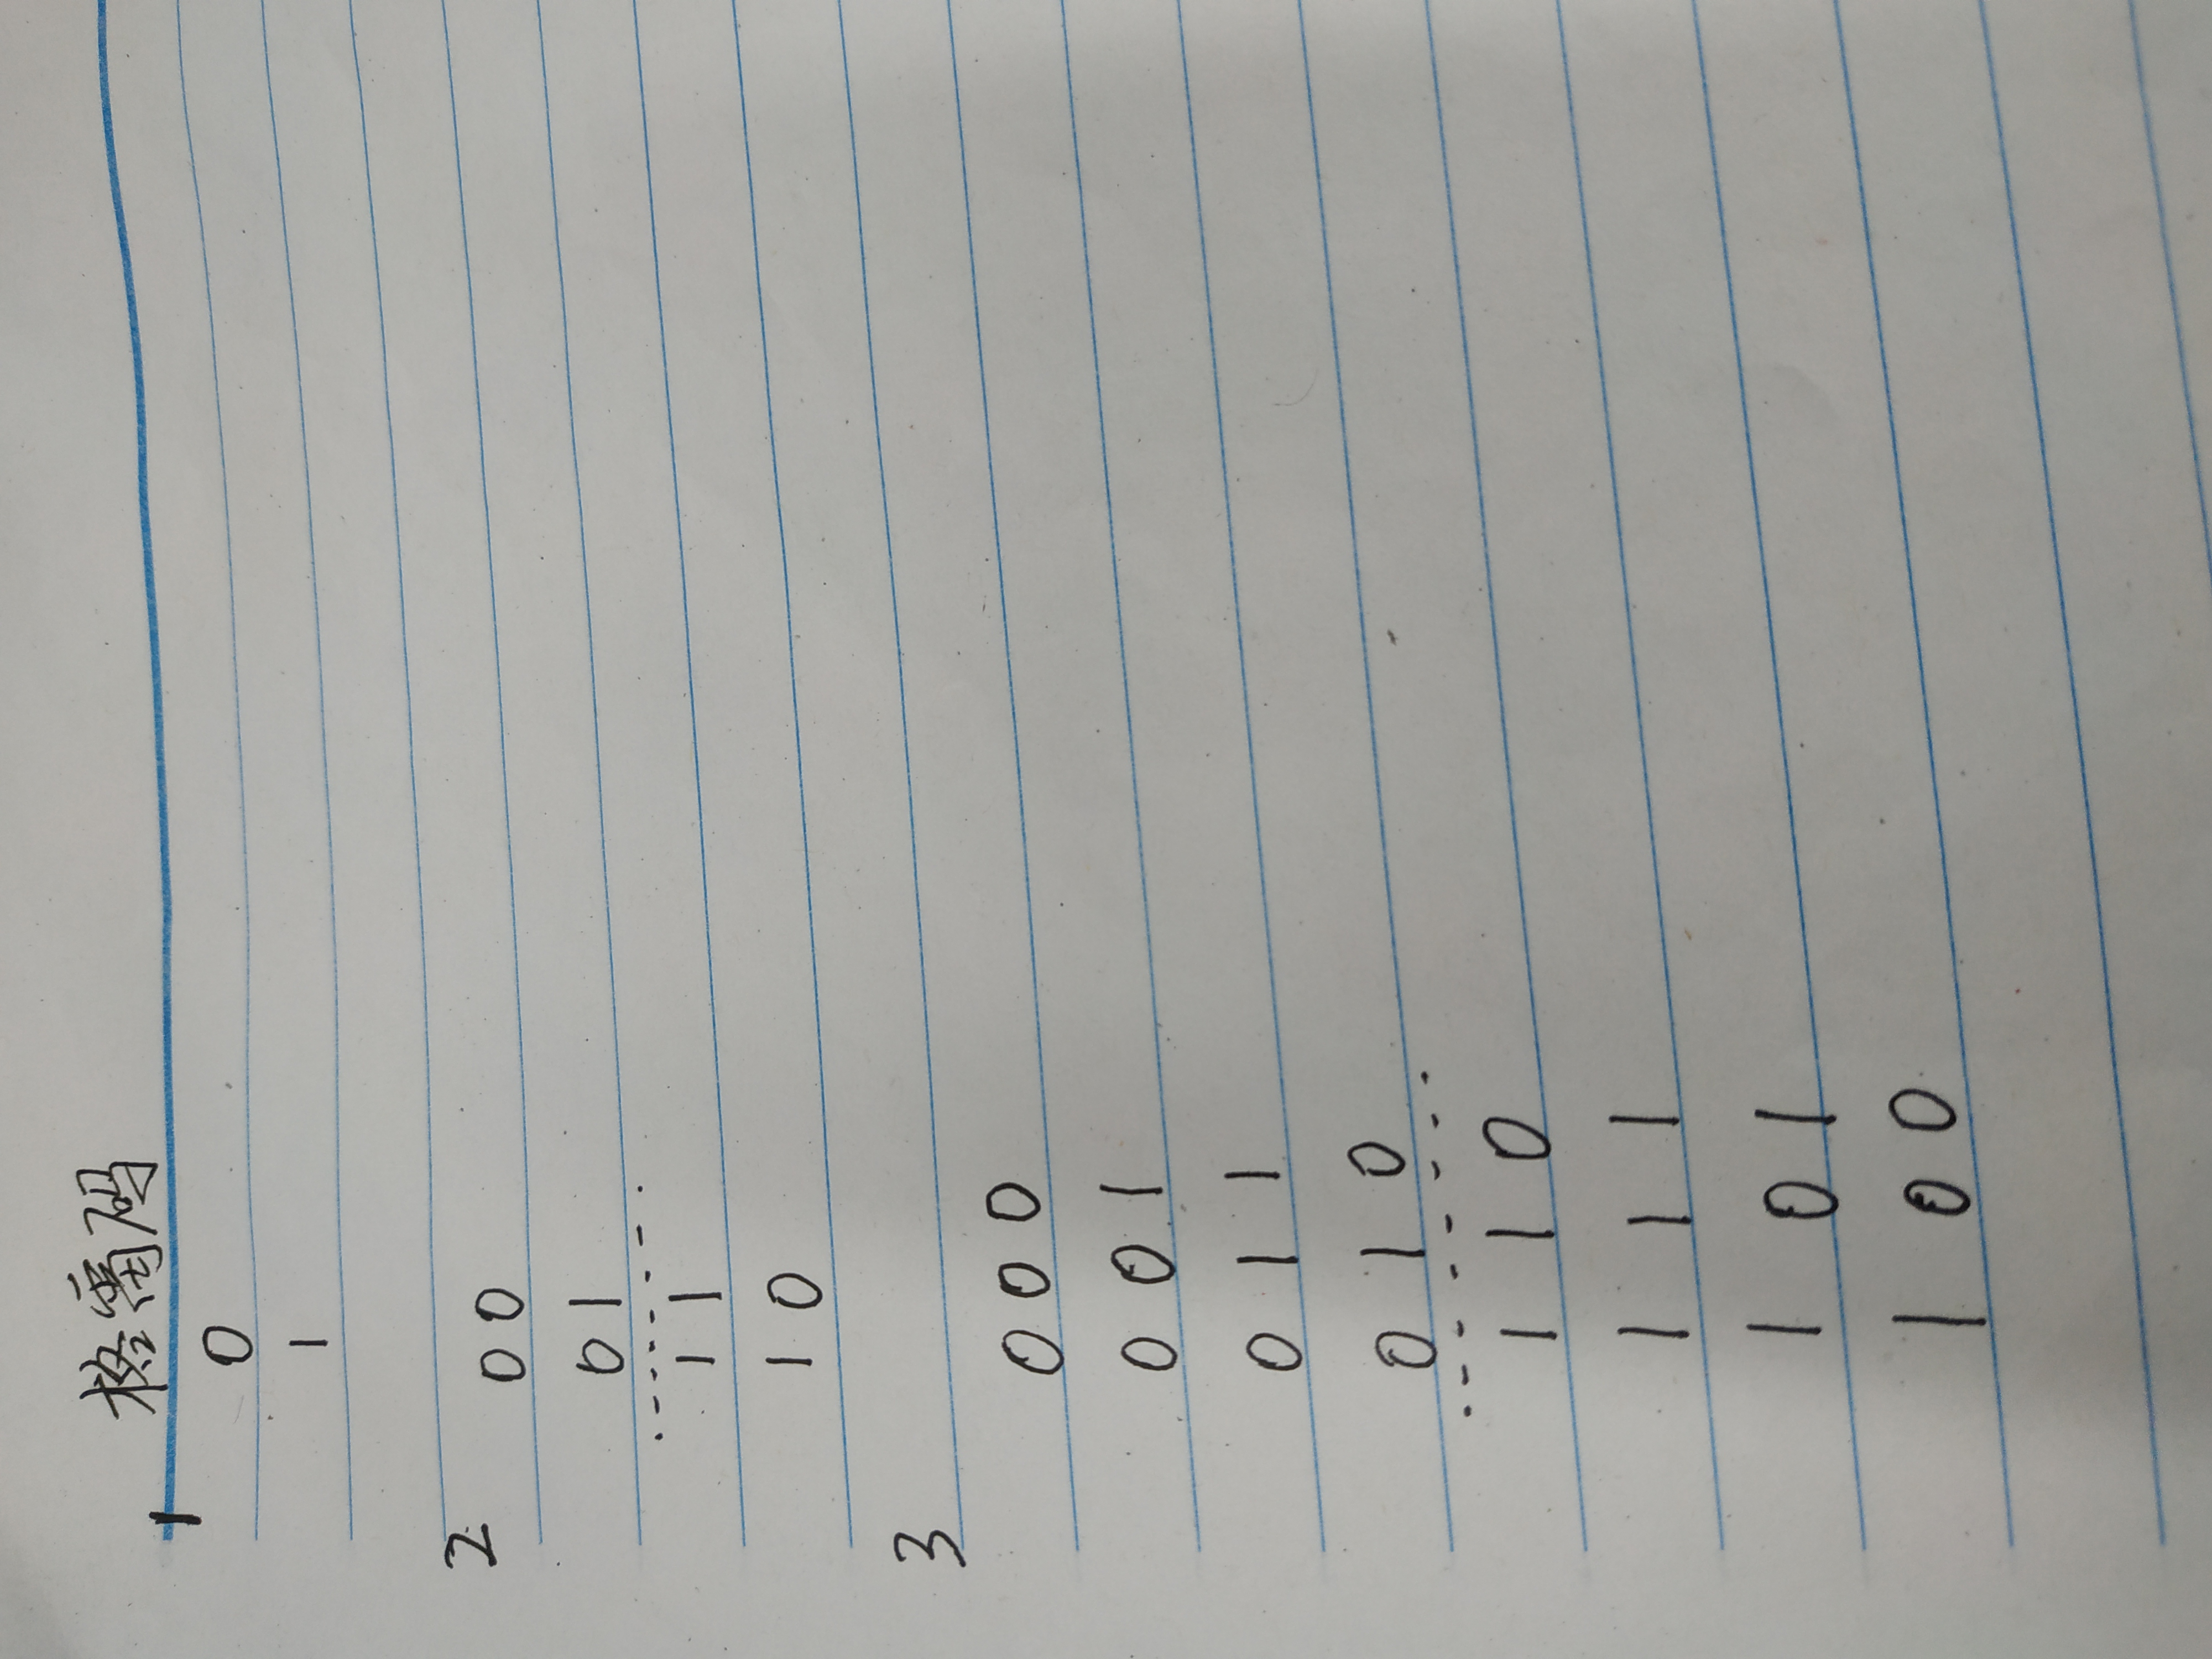 格雷码
1
0
1
2
00
01
11
10
3
000
001
011
010
110
111
101
100